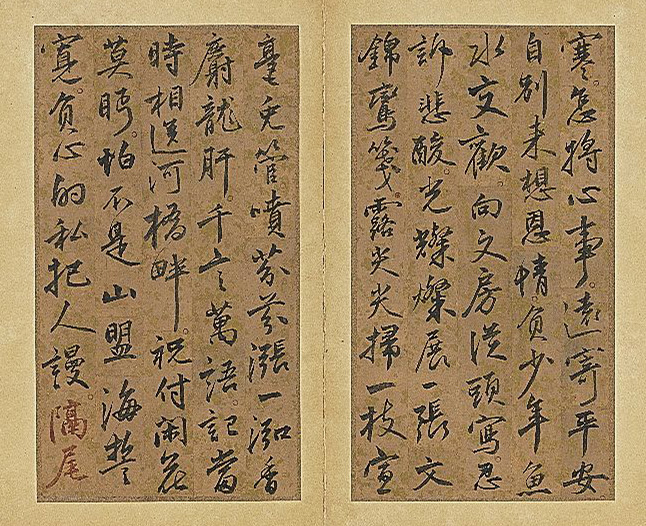 寒怎將心事遠寄平安
自別来想恩情負少年魚
水交歡向文房從頭寫忍
訴悲酸光燦燦展一張文
錦鸞箋露尖尖掃一枝宣
毫兎管噴芬芬漲一泓香
麝龍肝千言萬語記當
時相送河橋畔祝付閑花
莫眄怕不是山盟海誓
寬負心的私把人謾隔尾